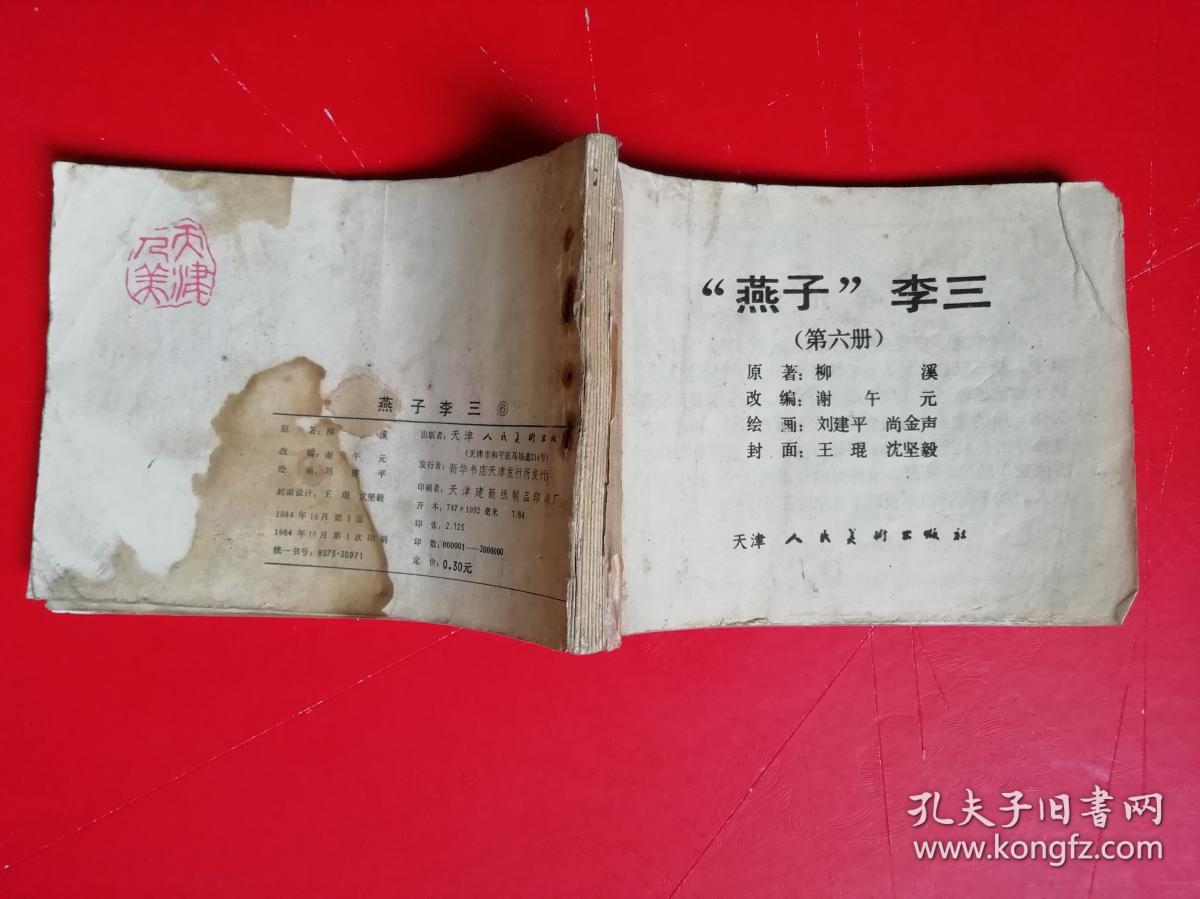 天津
人美
燕子李三⑥
原著：柳溪
改编：谢午元
绘画：刘建平
封面设计：王琨 沈坚毅
1984年10月第1版
1984年10月第1次印刷
统一书号：8073·30971
出版者：天津人民美术出版
（天津市和平区马场道214号）
发行者：新华书店天津发行所发行
印刷者：天津建新纸制品印刷厂
开本：787×1092毫米 1/64
印张：2.125
印数：000001—2000000
定价：0.30元
“燕子”李三
（第六册）
原著：柳溪
改编：谢午元
绘画：刘建平 尚金声
封面：王琨 沈坚毅
天津人民美术出版社
孔夫子旧书网
www.kongfz.com